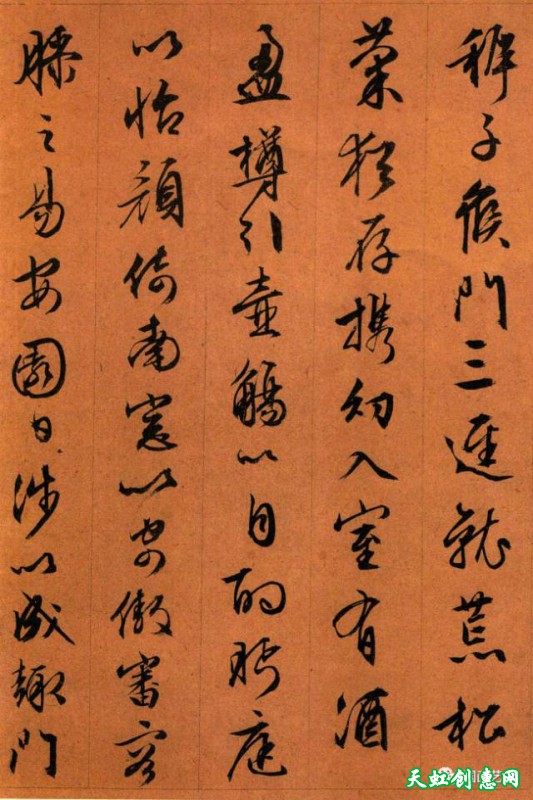 穉子候門三逕就荒松
菊猶存携幼入室有酒
盈樽引壺觴以自酌眄庭
以怡顔倚南窓以寄傲審容
膝之易安園日涉以成趣門
天虹创惠网